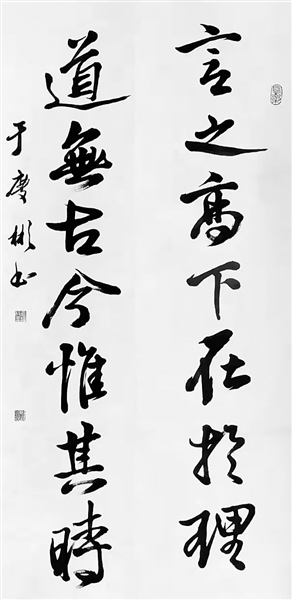 言之高下在於理
道無古今惟其時
于慶彬书